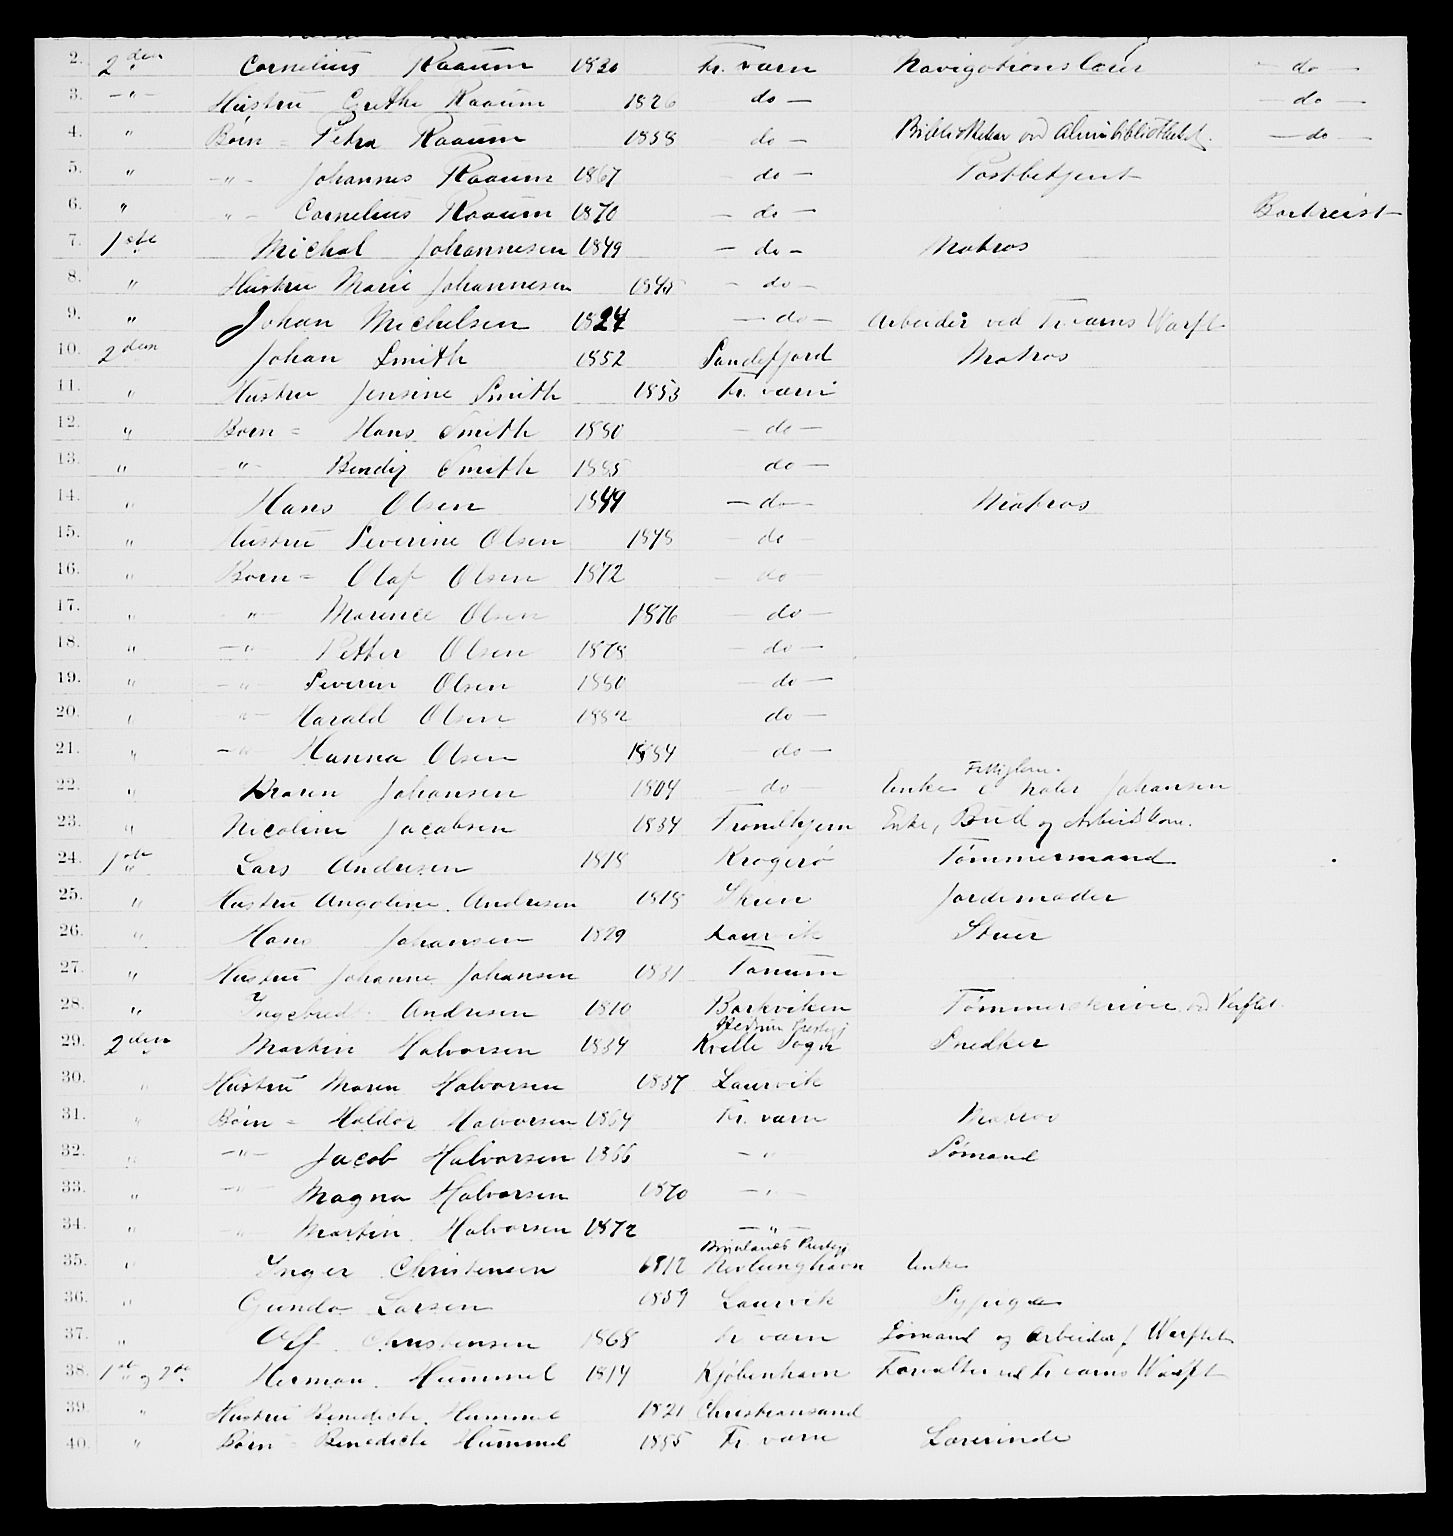 2. 2den Cornelius Raaum 1830 Fr. værn Navigationslærer - do -
3. - " - Hustru Grethe Raaum 1826 do - - do -
4. " Børn = Petra Raaum 1858 do - Bibliothekar ved Almuebibliotheket. - do -
5. " - " - Johannes Raaum 1867 - do - Postbetjent
6. " " - Cornelius Raaum 1870 - do - Bortreist
7. 1ste Michal Johannesen 1849 - do - Matros
8. " Hustru Marie Johannesen 1845 - do -
9. " Johan Michelsen 1824 - do - Arbeider ved Fr.værns Værft
10. 2den Johan Smith 1852 Sandefjord Matros
11. " Hustru Jensine Smith 1853 Fr. værn
12. " Børn = Hans Smith 1880 - do -
13. " - " - Bendix Smith 1885 do -
14. " Hans Olsen 1849 - do - Matros
15. " Hustru Severine Olsen 1848 - do -
16. " Børn = Olaf Olsen 1872 - do -
17. " - " - Marence Olsen 1876 - do -
18. " - " - Petter Olsen 1878 - do -
19. " - " - Severin Olsen 1880 - do -
20. " - " - Harald Olsen 1882 do -
21. " - " - Hanna Olsen 1884 - do -
22. " Maren Johansen 1804 - do - Enke e Maler Johansen Fattiglem.
23. " Nicoline Jacobsen 1834 Trondhjem Enke, Bud og Arbeidskone.
24. 1ste Lars Andresen 1818 Kragerø Tømmermand
25. " Hustru Angoline Andresen 1818 Skien Jordemoder
26. " Hans Johansen 1829 Laurvik Stuer
27. " Hustru Johanne Johansen 1831 Tanum
28. " Ingebredt Andresen 1810 Barkviken Tømmerskriver ved Verftet.
29. 2den Martin Halvorsen 1834 Hedrum Prestegj Kvelle Sogn Snedker
30. " Hustru Maren Halvorsen 1837 Laurvik
31. " Børn = Haldor Halvorsen 1864 Fr. værn Matros
32. " - " - Jacob Halvorsen 1866 - " Sømand
33. " - " - Magna Halvorsen 1870 - " -
34. " - " - Martin Halvorsen 1872 - " -
35. " Inger Christensen 1812 Brunlanes Prestegj Nevlunghavn Enke
36. " Gunda Larsen 1839 Laurvik Sypige
37. " Olf Christensen 1868 Fr værn Sømand og Arbeider f Værftet
38. 1ste og 2den Herman Hummel 1814 Kjøbenhavn Forvalter ved Fr værns Værft
39. " Hustru Benedicte Hummel 1821 Christiansand
40. " Børn = Benedicte Hummel 1855 Fr. værn Lærerinde